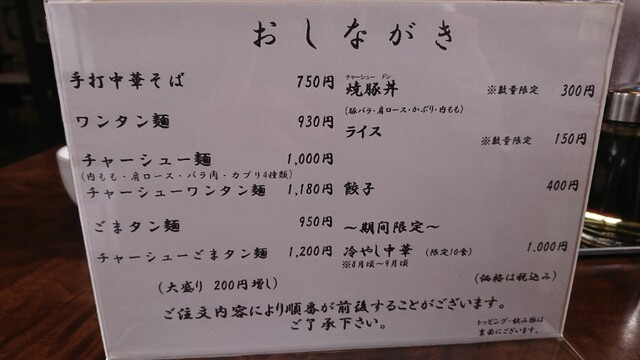 おしながき
手打中華そば 750円
ワンタン麺 930円
チャーシュー麺 1,000円
(内もも・肩ロース・バラ肉・カブリ4種類)
チャーシューワンタン麺 1,180円
ごまタン麺 950円
チャーシューごまタン麺 1,200円
(大盛り 200円増し)
チャーシュー ドン
焼豚丼 ※数量限定 300円
(豚バラ・肩ロース・かぶり・内もも)
ライス ※数量限定 150円
餃子 400円
～期間限定～
冷やし中華 (限定10食) 1,000円
※8月頃～9月頃
(価格は税込み)
ご注文内容により順番が前後することがございます。
ご了承下さい。
トッピング・飲み物は
裏面にございます。